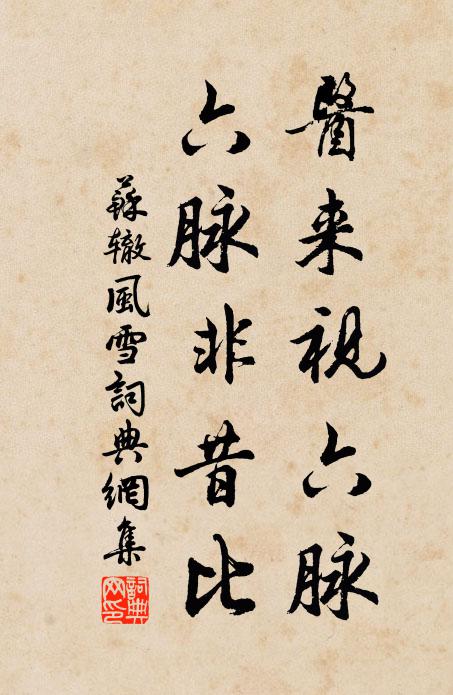 醫来視六脉
六脉非昔比
蘇辙風雪詞典網集
詞典
网印